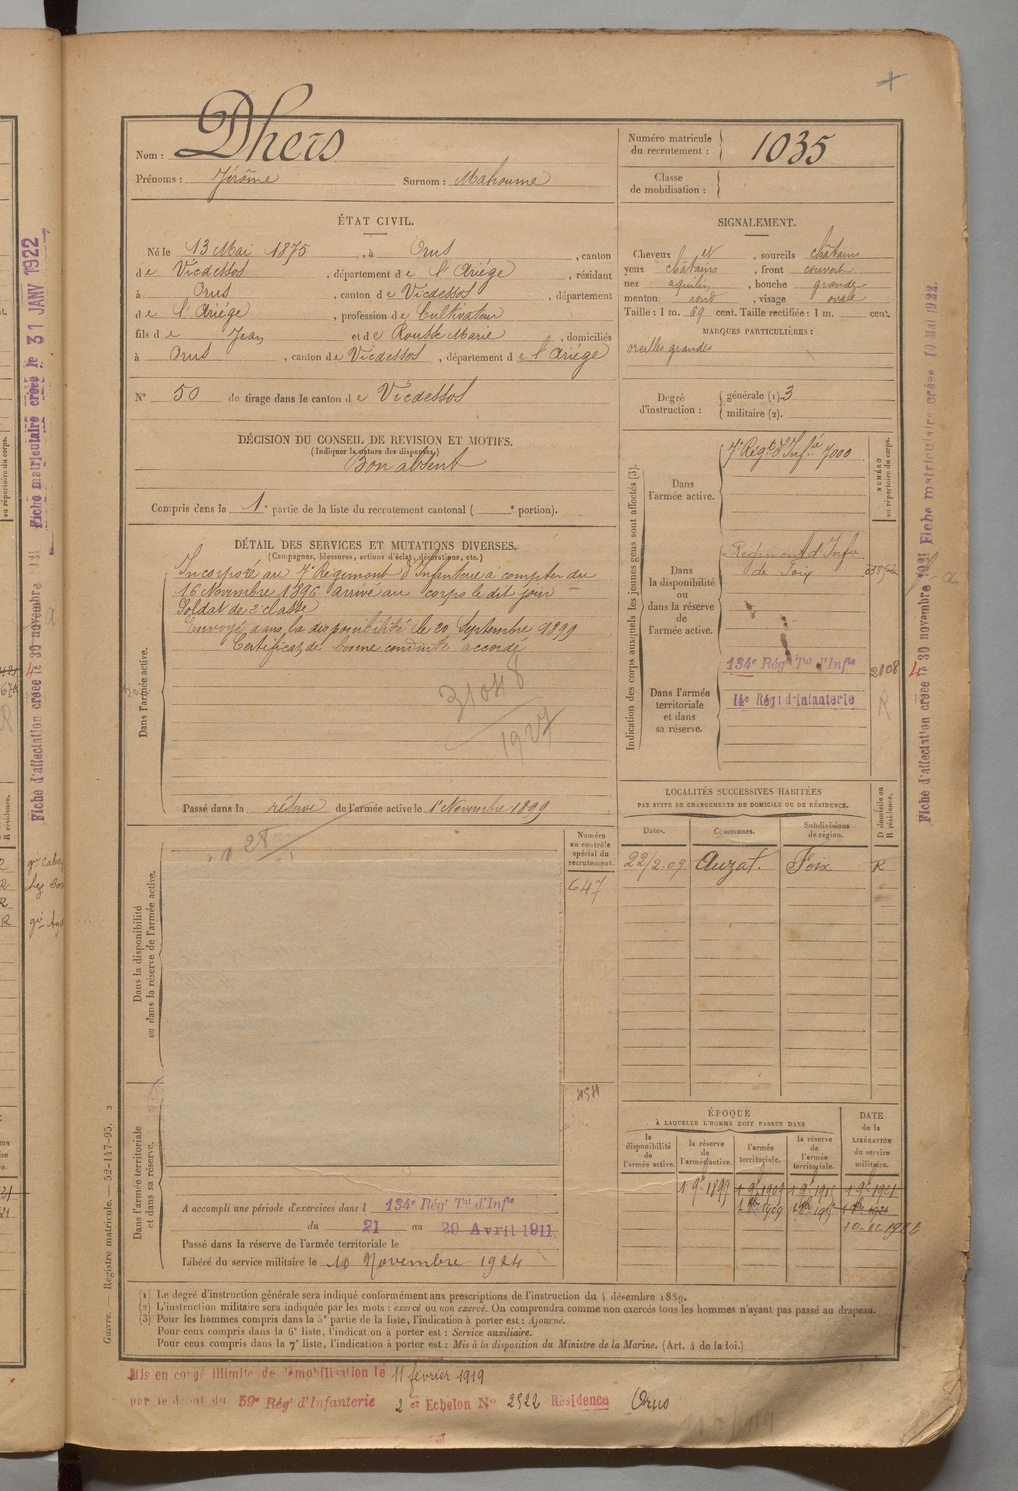 Nom : Dhers
Prénoms : Jérôme Surnom : Mahoume
Numéro matricule du recrutement : 1035
Classe de mobilisation :
ÉTAT CIVIL.
Né le 13 Mai 1875, à Orus, canton
de Vicdessos, département de l'Ariège, résidant
à Orus, canton de Vicdessos, département
de l'Ariège, profession de Cultivateur
fils de Jean et de Marie, domiciliés
à Orus, canton de Vicdessos, département de l'Ariège
N° 50 de tirage dans le canton de Vicdessos
DÉCISION DU CONSEIL DE REVISION ET MOTIFS.
(Indiquer la nature des dispenses.)
Bon absent
Compris dans la 1e partie de la liste du recrutement cantonal ( e portion).
SIGNALEMENT.
Cheveux et, sourcils châtains
yeux châtains, front couvert
nez aquilin, bouche grande
menton rond, visage ovale
Taille : 1 m. 69 cent. Taille rectifiée : 1 m. cent.
MARQUES PARTICULIÈRES :
oreilles grandes
Degré d'instruction : générale (1). 3
militaire (2).
DÉTAIL DES SERVICES ET MUTATIONS DIVERSES.
(Campagnes, blessures, actions d'éclat, décorations, etc.)
Dans l'armée active.
Incorporé au 7e Régiment d'Infanterie à compter du
16 Novembre 1896 arrivé au corps le dit jour
Soldat de 2e classe
Envoyé dans la disponibilité le 20 Septembre 1899
Certificat de bonne conduite accordé
31048
1927
Passé dans la réserve de l'armée active le 1er Novembre 1899
28
Indication des corps auxquels les jeunes gens sont affectés (3).
NUMÉRO au répertoire du corps.
Dans l'armée active.
7e Régt d'Infie 7000
Dans la disponibilité ou dans la réserve de l'armée active.
Régiment d'Infie
de Foix
Dans l'armée territoriale et dans sa réserve.
134e Régt Tal d'Infie 2808
14e Régt d'Infanterie R
LOCALITÉS SUCCESSIVES HABITÉES
PAR SUITE DE CHANGEMENTS DE DOMICILE OU DE RÉSIDENCE.
Dates. Communes. Subdivisions de région. D domicile ou R résidence.
22/2.09 Auzat. Foix R
Dans la disponibilité ou dans la réserve de l'armée active.
Numéro au contrôle spécial du recrutement.
647
Dans l'armée territoriale et dans sa réserve.
A accompli une période d'exercices dans l 134e Régt Tal d'Infie
du 21 au 29 Avril 1911
Passé dans la réserve de l'armée territoriale le
Libéré du service militaire le 10 Novembre 1924
ÉPOQUE
À LAQUELLE L'HOMME DOIT PASSER DANS
la disponibilité de l'armée active.
la réserve de l'armée active.
l'armée territoriale.
la réserve de l'armée territoriale.
DATE de la LIBÉRATION du service militaire.
1 9bre 1899 1 9bre 1909 1 9bre 1915 1 9bre 1921
(1) Le degré d'instruction générale sera indiqué conformément aux prescriptions de l'instruction du 4 décembre 1889.
(2) L'instruction militaire sera indiquée par les mots : exercé ou non exercé. On comprendra comme non exercés tous les hommes n'ayant pas passé au drapeau.
(3) Pour les hommes compris dans la 5e partie de la liste, l'indication à porter est : Ajourné.
Pour ceux compris dans la 6e liste, l'indication à porter est : Service auxiliaire.
Pour ceux compris dans la 7e liste, l'indication à porter est : Mis à la disposition du Ministre de la Marine. (Art. 4 de la loi.)
Guerre. — Registre matricule. — 52-147-95. 2
Mis en congé illimité de démobilisation le 11 février 1919
par le dépôt du 59e Régt d'Infanterie 2 er Echelon N° 2522 Résidence Orus
Fiche d'affectation créée le 30 novembre 1921 Fiche matriculaire créée le 31 JANV 1922
Fiche d'affectation créée le 30 novembre 1921 Fiche matriculaire créée 10 Mai 1922.